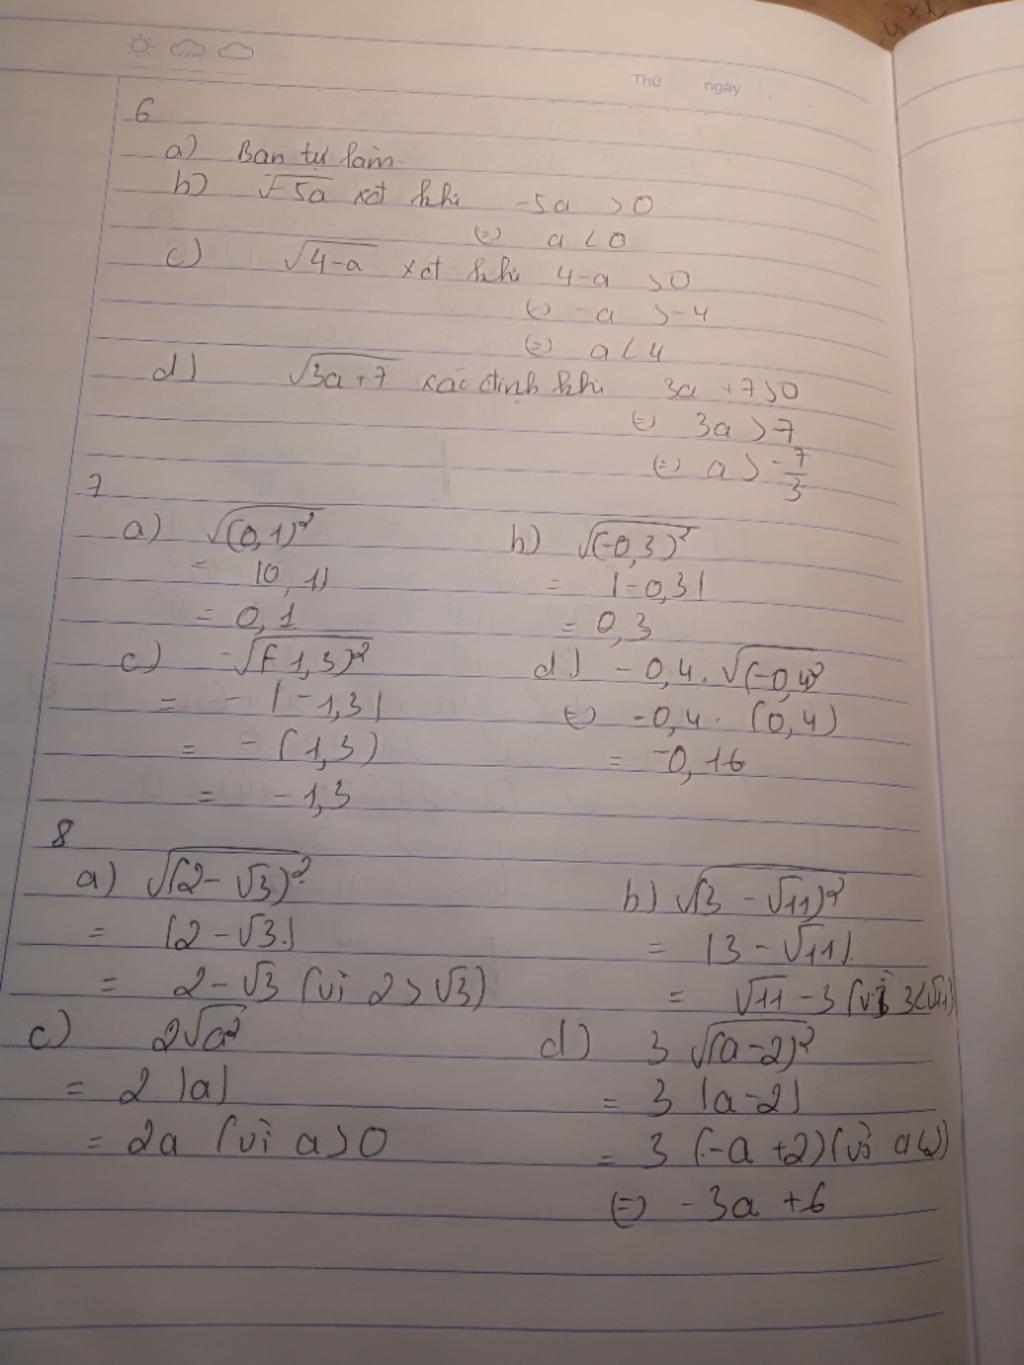 Thứ ngày
6
a) Bạn tự làm.
b) √-5a xđ khi -5a > 0
(=) a < 0
c) √4-a xđ khi 4-a > 0
(=) -a > -4
(=) a < 4
d) √3a+7 xác định khi 3a +7 > 0
(=) 3a > 7
(=) a > -7/3
7
a) √(0,1)²
= |0,1|
= 0,1
b) √(-0,3)²
= |-0,3|
= 0,3
c) -√(-1,3)²
= - |-1,3|
= - (1,3)
= - 1,3
d) - 0,4. √(-0,4)²
(=) -0,4. (0,4)
= -0,16
8
a) √(2-√3)²
= |2-√3|
= 2-√3 (vì 2 > √3)
b) √(3 - √11)²
= |3 - √11|
= √11 - 3 (vì 3<√11)
c) 2√a²
= 2.|a|
= 2a (vì a > 0
d) 3 √(a-2)²
= 3 |a-2|
= 3 (-a +2) (vì a<2)
(=) - 3a +6